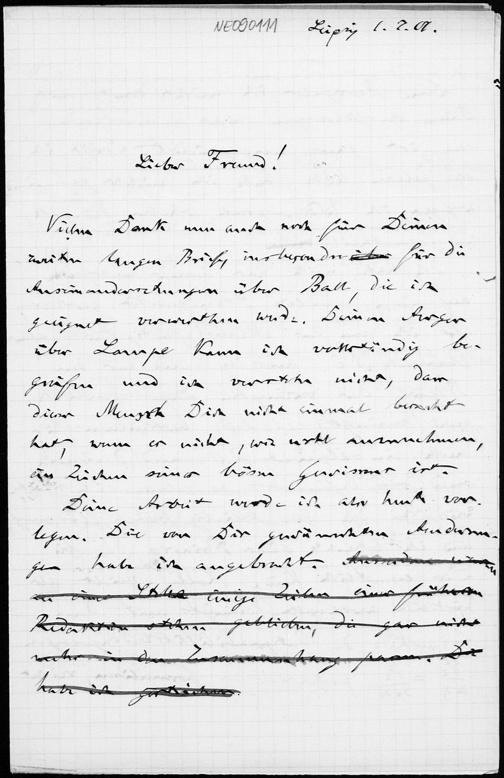 NE090111
Leipzig 1. 7. 01.
Lieber Freund!
Vielen Dank nun auch noch für Deinen
zweiten langen Brief, insbesondere über für die
Auseinandersetzungen über Ball, die ich
geeignet verwerthen werde. Deinen Aerger
über Lampe kann ich vollständig be-
greifen und ich verstehe nicht, dass
dieser Mensch Dich nicht einmal besucht
hat, wenn es nicht, wie wohl anzunehmen,
ein Zeichen seines bösen Gewissens ist.
Deine Arbeit werde ich also heute vor-
legen. Die von Dir gewünschten Änderun-
gen habe ich angebracht.
an einer Stelle einige Zeilen einer früheren
Redaktion stehen geblieben, die gar nicht
mehr in den Zusammenhang passen. Die
habe ich gestrichen.